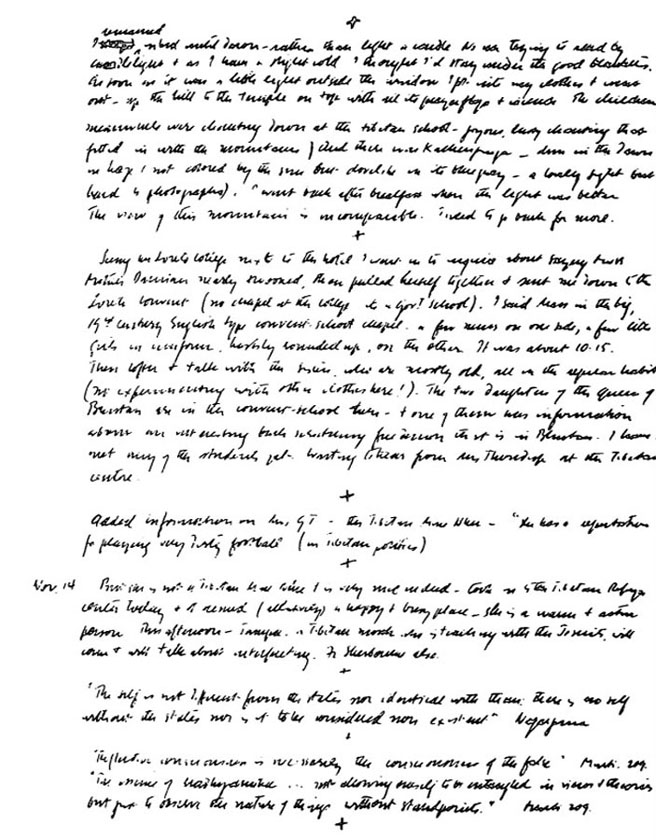 remained
rested until dawn - rather than light a candle. No use trying to read by
candlelight & as I have a slight cold I thought I'd stay under the good blankets.
As soon as it was a little light outside the window I put on my clothes & went
out - up the hill to the temple on top with all its prayer flags & incense. The children
meanwhile were chanting down at the Tibetan school - joyous, lusty chanting that
fitted in with the mountains. And there was Kanchenjunga - dim in the dawn
in haze, not colored by the sun but dovelike in its blue gray - a lovely sight but
hard to photograph. I went back after breakfast when the light was better.
The view of this mountain is incomparable. I need to go back for more.
+
Seeing an Loreto College next to the hotel I went in to inquire about saying Mass
Mother Damian nearly swooned, then pulled herself together & sent me down to the
Loreto convent (no chapel at the college, it is a gov't school). I said Mass in the big,
19th century English type convent-school chapel. A few nuns on one side, a few little
girls in uniform, hastily rounded up, on the other. It was about 10.15.
Then coffee & talk with the sisters, who are mostly old, all in the regular habit
(no experimenting with other clothes here!). The two daughters of the queen of
Bhutan are in the convent-school here - & one of them was information
about an interesting
not any of the students yet. Waiting to hear from at the Tibetan
centre.
+
Added information on Mrs. GT - the Tibetan - "She has a reputation
for playing very dirty football" (in Tibetan politics)
+
Nov. 14 is very nice indeed - took us to the Tibetan Refugee
center today & it seemed (relatively) a happy & busy place - she is a warm & active
person. This afternoon - a Tibetan monk who is teaching with the Jesuits, will
come & will talk about interpreting. Fr Sherburne also.
+
"The self is not different from the states nor identical with them: there is no self
without the states nor is it to be considered non existent" Nagarjuna
+
"Reflective consciousness is necessarily the consciousness of the false" Murti. 209.
"The essence of Madhyamika ... not allowing oneself to be entangled in views & theories
but just to observe the nature of things without standpoints." Murti 209.
+